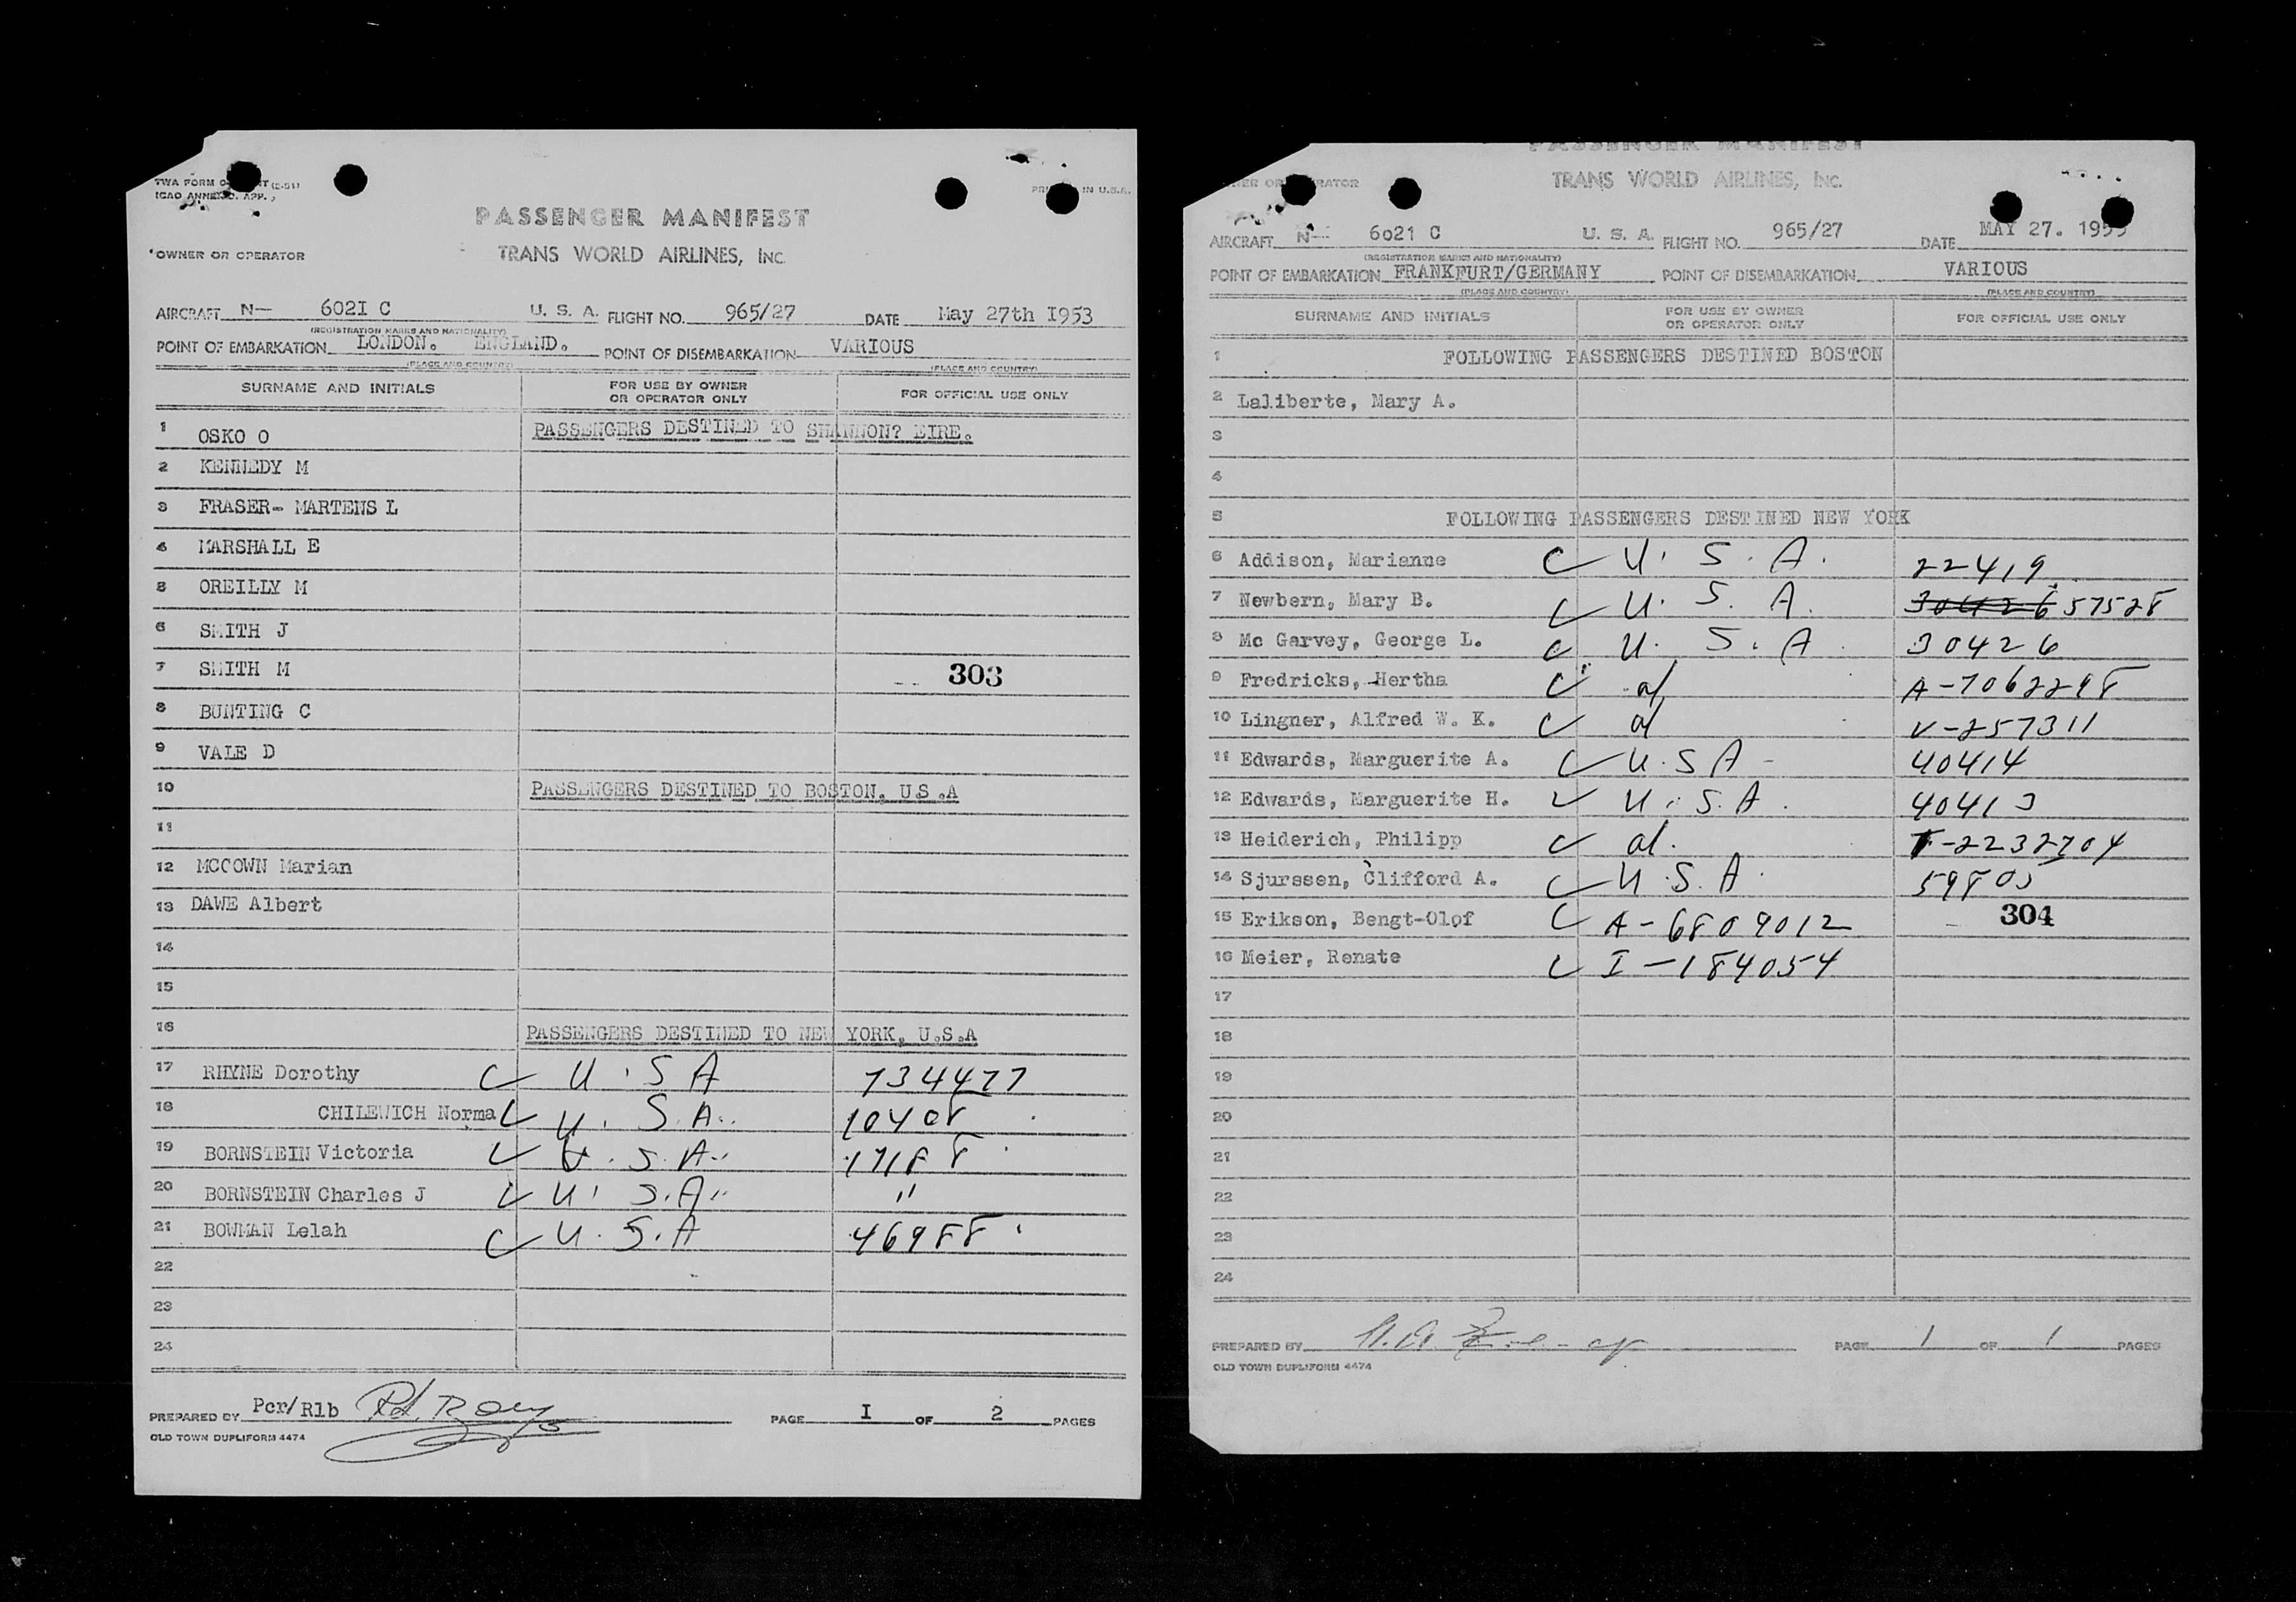 TWA FORM
ICAO ANNEX
IN U.S.A.
PASSENGER MANIFEST
*OWNER OR OPERATOR TRANS WORLD AIRLINES, INC.
AIRCRAFT N— 602I C U. S. A. FLIGHT NO. 965/27 DATE May 27th I953
(REGISTRATION MARKS AND NATIONALITY)
POINT OF EMBARKATION LONDON. ENGLAND. POINT OF DISEMBARKATION VARIOUS
(PLACE AND COUNTRY) (PLACE AND COUNTRY)
SURNAME AND INITIALS FOR USE BY OWNER OR OPERATOR ONLY FOR OFFICIAL USE ONLY
1 OSKO O PASSENGERS DESTINED TO SHANNON? EIRE.
2 KENNEDY M
3 FRASER- MARTENS L
4 MARSHALL E
5 OREILLY M
6 SMITH J
7 SMITH M 303
8 BUNTING C
9 VALE D
10 PASSENGERS DESTINED TO BOSTON. U.S.A
11
12 MCCOWN Marian
13 DAWE Albert
14
15
16 PASSENGERS DESTINED TO NEW YORK, U.S.A
17 RHYNE Dorothy U.SA 734477
18 CHILEWICH Norma U.S.A. 10408
19 BORNSTEIN Victoria U.S.A. 17188
20 BORNSTEIN Charles J U.S.A. "
21 BOWMAN Lelah U.S.A 46988
22
23
24
PREPARED BY Pcr/Rlb PAGE I OF 2 PAGES
OLD TOWN DUPLIFORM 4474
PASSENGER MANIFEST
TRANS WORLD AIRLINES, INC.
AIRCRAFT N— 6021 C U. S. A. FLIGHT NO. 965/27 DATE MAY 27. 1953
(REGISTRATION MARKS AND NATIONALITY)
POINT OF EMBARKATION FRANKFURT/GERMANY POINT OF DISEMBARKATION VARIOUS
(PLACE AND COUNTRY) (PLACE AND COUNTRY)
SURNAME AND INITIALS FOR USE BY OWNER OR OPERATOR ONLY FOR OFFICIAL USE ONLY
1 FOLLOWING PASSENGERS DESTINED BOSTON
2 Laliberte, Mary A.
3
4
5 FOLLOWING PASSENGERS DESTINED NEW YORK
6 Addison, Marianne U.S.A. 22419
7 Newbern, Mary B. U.S.A. 30426 57528
8 Mc Garvey, George L. U.S.A. 30426
9 Fredricks, Hertha al A-7062298
10 Lingner, Alfred W. K. al V-257311
11 Edwards, Marguerite A. U.SA 40414
12 Edwards, Marguerite H. U.S.A. 40413
13 Heiderich, Philipp al. T-2232704
14 Sjurssen, Clifford A. U.S.A. 59805
15 Erikson, Bengt-Olof A-6809012 304
16 Meier, Renate I-184054
17
18
19
20
21
22
23
24
PREPARED BY PAGE 1 OF 1 PAGES
OLD TOWN DUPLIFORM 4474